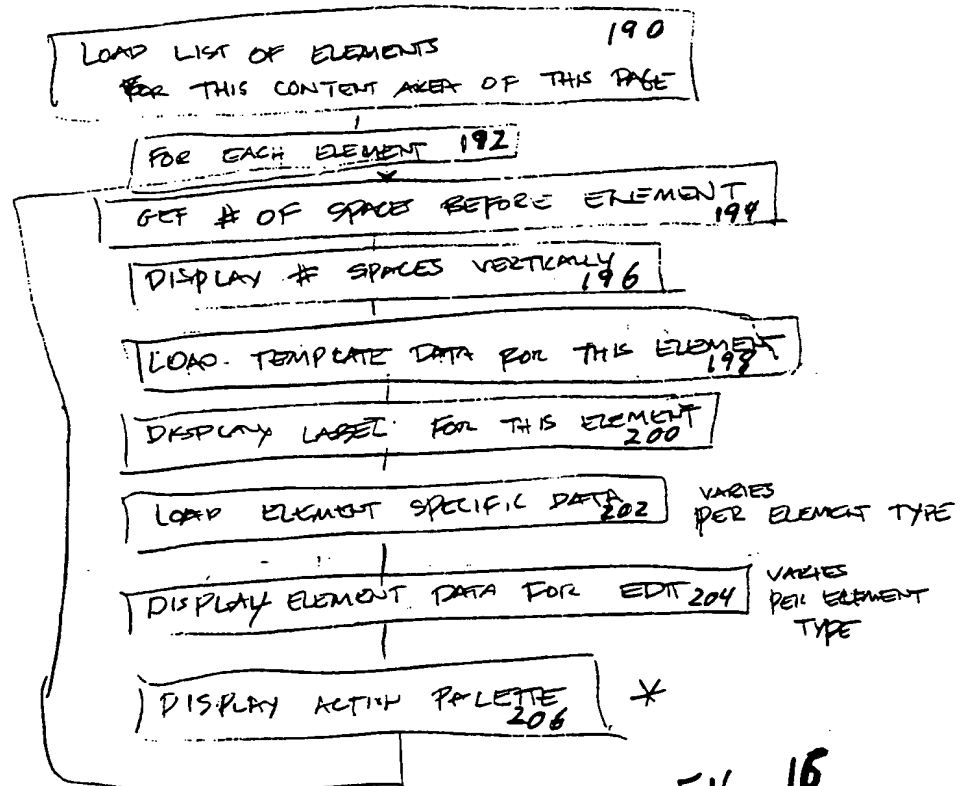 190
LOAD LIST OF ELEMENTS
FOR THIS CONTENT AREA OF THIS PAGE
FOR EACH ELEMENT 192
GET # OF SPACES BEFORE ELEMENT
194
DISPLAY # SPACES VERTICALLY
196
LOAD TEMPLATE DATA FOR THIS ELEMENT
198
DISPLAY LABEL FOR THIS ELEMENT
200
LOAD ELEMENT SPECIFIC DATA 202
VARIES
PER ELEMENT TYPE
DISPLAY ELEMENT DATA FOR EDIT 204
VARIES
PER ELEMENT
TYPE
DISPLAY ACTION PALETTE *
206